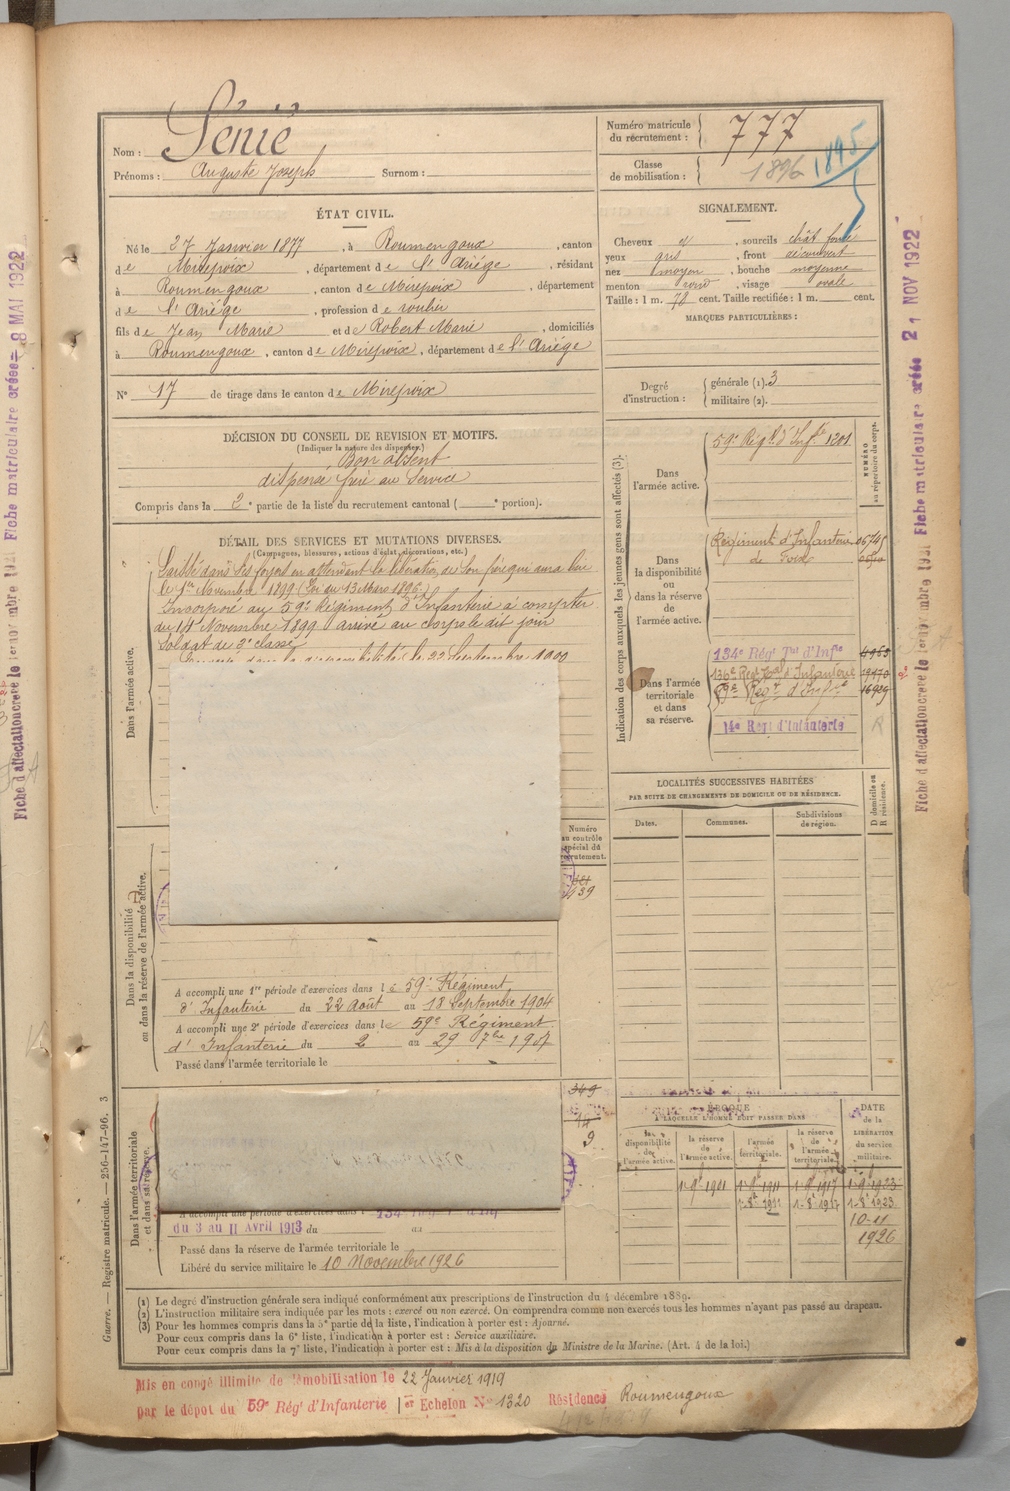 Nom : Sénié
Prénoms : Auguste Joseph Surnom :
Numéro matricule du recrutement : 777
Classe de mobilisation : 1896 1895
ÉTAT CIVIL.
Né le 27 Janvier 1877, à Roumengoux, canton
de Mirepoix, département de l'Ariége, résidant
à Roumengoux, canton de Mirepoix, département
de l'Ariége, profession de roulier
fils de Jean Marie et de Robert Marie, domiciliés
à Roumengoux, canton de Mirepoix, département de l'Ariége
N° 17 de tirage dans le canton de Mirepoix
SIGNALEMENT.
Cheveux et, sourcils chât. foncé
yeux gris, front découvert
nez moyen, bouche moyenne
menton rond, visage ovale
Taille : 1 m. 78 cent. Taille rectifiée : 1 m. cent.
MARQUES PARTICULIÈRES :
Degré d'instruction : générale (1). 3
militaire (2).
DÉCISION DU CONSEIL DE REVISION ET MOTIFS.
(Indiquer la nature des dispenses.)
Bon absent
dispensé frère au Service
Compris dans la 2e partie de la liste du recrutement cantonal ( e portion).
DÉTAIL DES SERVICES ET MUTATIONS DIVERSES.
(Campagnes, blessures, actions d'éclat, décorations, etc.)
Dans l'armée active.
Laissé dans ses foyers en attendant la libération de son frère qui aura lieu
le 1er Novembre 1899 (Loi du 13 Mars 1896)
Incorporé au 59e Régiment d'Infanterie à compter
du 14 Novembre 1899 arrivé au corps le dit jour
Soldat de 2e classe
dans la disponibilité le 22 Septembre 1900
Indication des corps auxquels les jeunes gens sont affectés (3).
NUMÉRO au répertoire du corps.
Dans l'armée active.
59e Régt. d'Infie 1201
Dans la disponibilité ou dans la réserve de l'armée active.
Régiment d'Infanterie
de Foix
Dans l'armée territoriale et dans sa réserve.
134e Régt Tal d'Infie
136e Régt Tal d'Infanterie
59e Régt d'Infie 16929
14e Régt d'Infanterie
LOCALITÉS SUCCESSIVES HABITÉES
PAR SUITE DE CHANGEMENTS DE DOMICILE OU DE RÉSIDENCE.
Dates. Communes. Subdivisions de région. D domicile ou R résidence.
Numéro au contrôle spécial du recrutement.
Dans la disponibilité ou dans la réserve de l'armée active.
A accompli une 1re période d'exercices dans le 59e Régiment
d'Infanterie du 22 Août au 18 Septembre 1904
A accompli une 2e période d'exercices dans le 59e Régiment
d'Infanterie du 2 au 29 7bre 1907
Passé dans l'armée territoriale le
349
14
9
Dans l'armée territoriale et dans sa réserve.
A accompli une période d'exercices dans l 134
du 3 au 11 Avril 1913 du au
Passé dans la réserve de l'armée territoriale le
Libéré du service militaire le 10 Novembre 1926
ÉPOQUE
À LAQUELLE L'HOMME DOIT PASSER DANS
la disponibilité de l'armée active. la réserve de l'armée active. l'armée territoriale. la réserve de l'armée territoriale.
DATE de la LIBÉRATION du service militaire.
1-9e 1911 1-9e 1917 1-9e 1923
1-8e 1917 1-8e 1923
10-11
1926
(1) Le degré d'instruction générale sera indiqué conformément aux prescriptions de l'instruction du 4 décembre 1889.
(2) L'instruction militaire sera indiquée par les mots : exercé ou non exercé. On comprendra comme non exercés tous les hommes n'ayant pas passé au drapeau.
(3) Pour les hommes compris dans la 5e partie de la liste, l'indication à porter est : Ajourné.
Pour ceux compris dans la 6e liste, l'indication à porter est : Service auxiliaire.
Pour ceux compris dans la 7e liste, l'indication à porter est : Mis à la disposition du Ministre de la Marine. (Art. 4 de la loi.)
Mis en congé illimité de démobilisation le 22 Janvier 1919
par le dépôt du 59e Régt d'Infanterie 1er Echelon N° 1320 Résidence Roumengoux
Guerre. — Registre matricule. — 256-147-96. 3
Fiche matriculaire créée 8 MAI 1922
Fiche d'affectation créée le 1er novembre
Fiche matriculaire créée 21 NOV 1922
Fiche d'affectation créée le 1er novembre